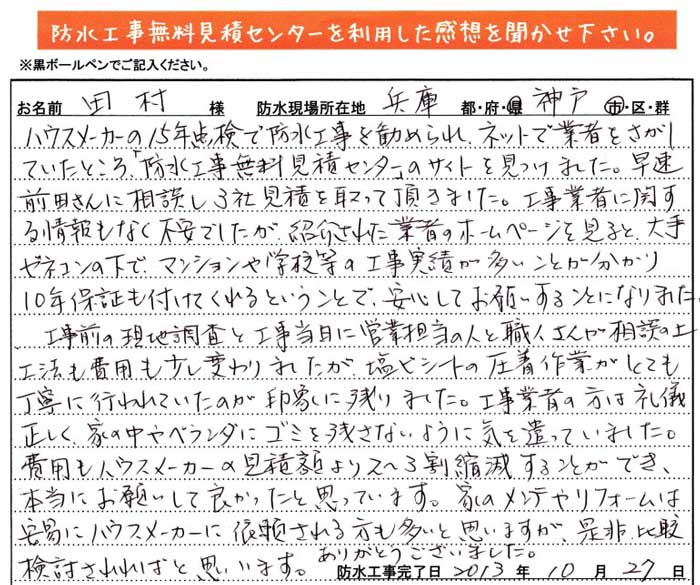 防水工事無料見積センターを利用した感想を聞かせ下さい。
※黒ボールペンでご記入ください。
お名前 田村 様 防水現場所在地 兵庫 都・府・県 神戸 市・区・群
ハウスメーカーの15年点検で防水工事を勧められ、ネットで業者をさがし
ていたところ、「防水工事無料見積センター」のサイトを見つけました。早速
前田さんに相談し3社見積を取って頂きました。工事業者に関す
る情報もなく不安でしたが、紹介された業者のホームページを見ると、大手
ゼネコンの下で、マンションや学校等の工事実績が多いことが分かり
10年保証も付けてくれるということで、安心してお願いすることになりました
工事前の現地調査と工事当日に営業担当の人と職人さんが相談の上
工法も費用も少し変わりましたが、塩ビシートの圧着作業がとても
丁寧に行われていたのが印象に残りました。工事業者の方は礼儀
正しく、家の中やベランダにゴミを残さないように気を遣っていました。
費用もハウスメーカーの見積額より2〜3割縮減することができ、
本当にお願いして良かったと思っています。家のメンテやリフォームは
安易にハウスメーカーに依頼される方も多いと思いますが、是非比較
検討されればと思います。ありがとうございました。
防水工事完了日 2013 年 10 月 27 日